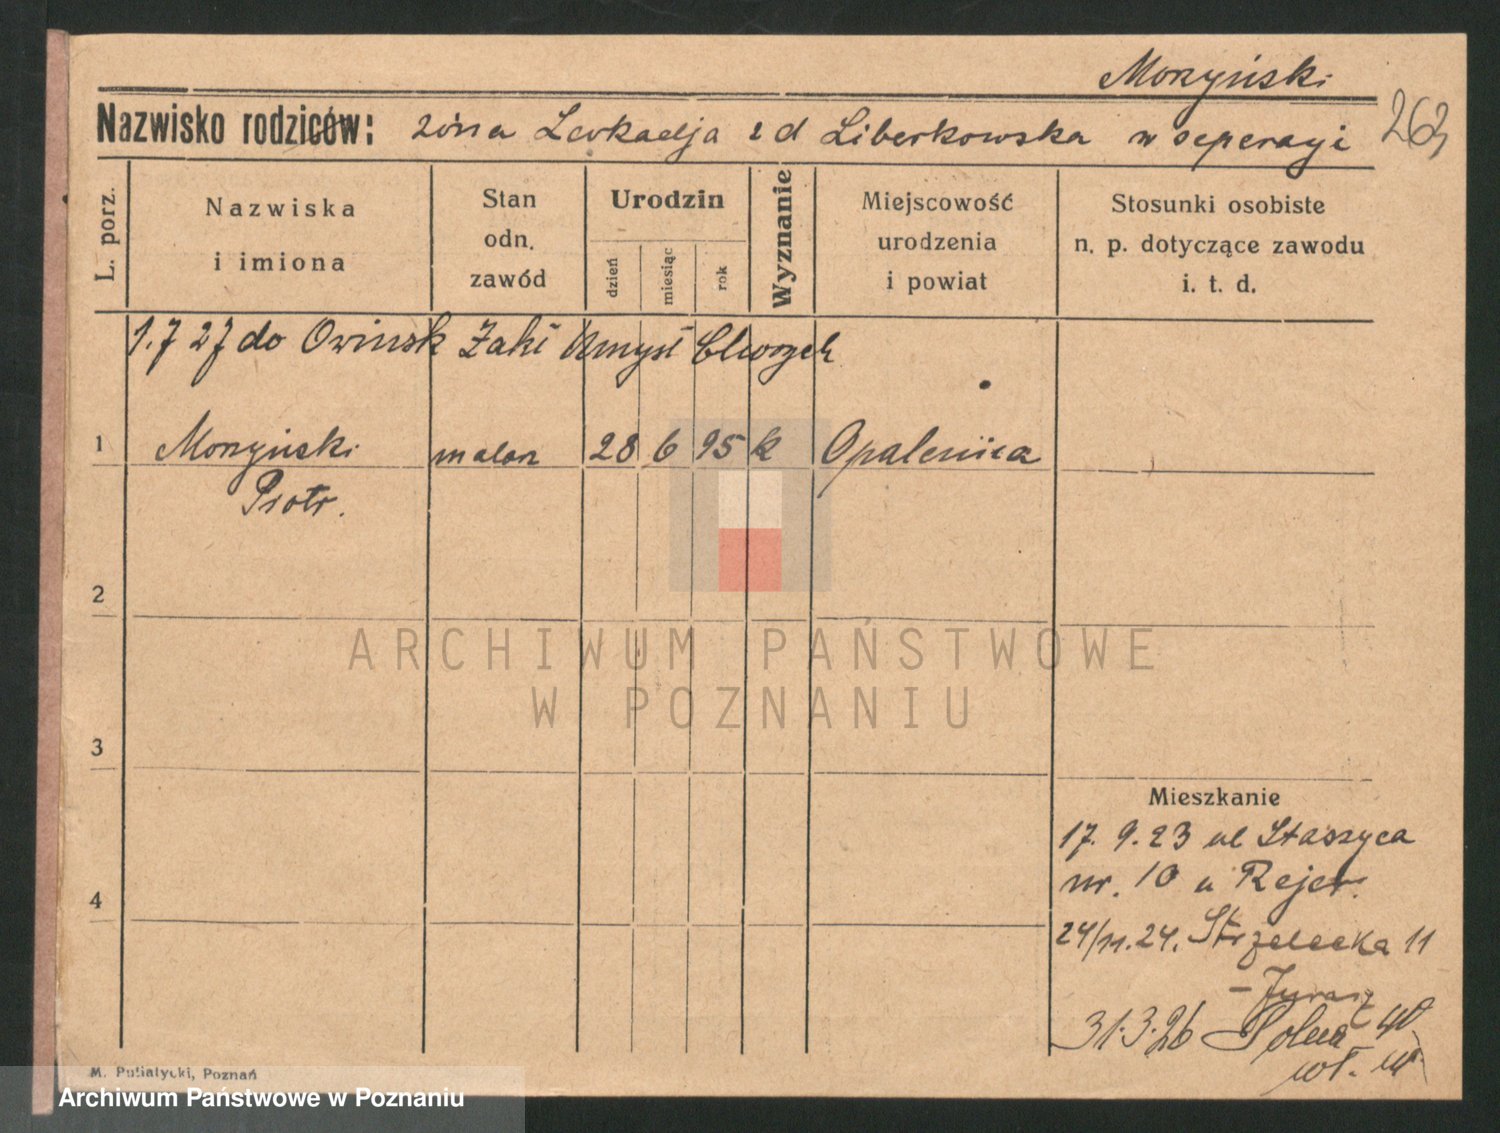 Morzyński
263
Nazwisko rodziców: żona Leokadja z d Liberkowska w seperacji
L. porz.
Nazwiska
i imiona
Stan
odn.
zawód
Urodzin
dzień
miesiąc
rok
Wyznanie
Miejscowość
urodzenia
i powiat
Stosunki osobiste
n. p. dotyczące zawodu
i. t. d.
1.7 27 do Owinsk Zakł Umysł Chorych
1 Morzyński malarz 28 6 95 k Opalenica
Piotr.
2
3
4
ARCHIWUM PAŃSTWOWE
W POZNANIU
Mieszkanie
17. 9. 23 ul Staszyca
nr. 10 u Rejer.
24/11. 24. Strzelecka 11
- Jurasz
31.3.26 Solna 40
M. Putiatycki, Poznań
Archiwum Państwowe w Poznaniu